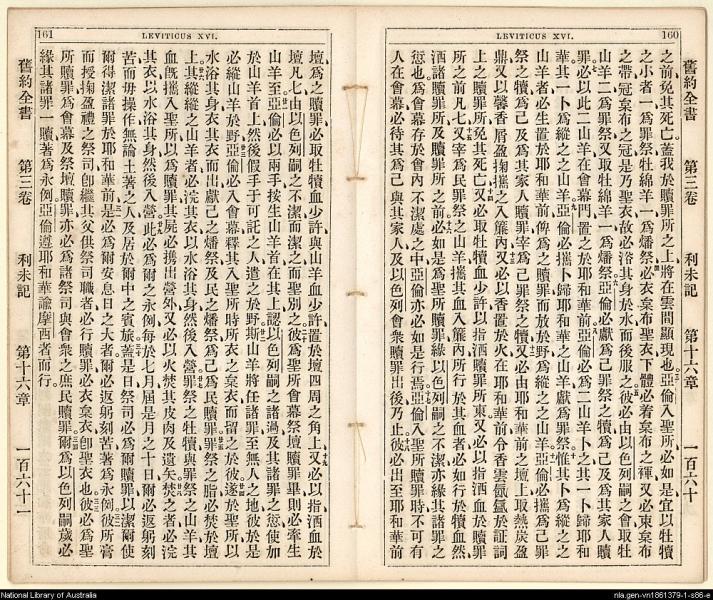 160
LEVITICUS XVI.
舊約全書 第三卷 利未記 第十六章 一百六十
之前免其死亡蓋我於贖罪所之上將在雲間顯現也亞倫入聖所必如是宜以牡犢
之小者一爲罪祭牡綿羊一爲燔祭必衣枲布聖衣下體必着枲布之褌又必束枲布
之帶冠枲布之冠是乃聖衣故必浴其身於水而後服之彼必由以色列嗣之會取牡
山羊二爲罪祭又取牡綿羊一爲燔祭亞倫必獻爲己罪祭之犢爲己及爲其家人贖
罪必以此二山羊在會幕門置之於耶和華前亞倫必爲二山羊卜之其一卜歸耶和
華其一卜爲縱之之山羊亞倫必攜卜歸耶和華之山羊獻爲罪祭惟其卜爲縱之之
山羊者必生置於耶和華前俾爲之贖罪而放於野爲縱之之山羊亞倫必攜爲己罪
祭之犢爲己及爲其家人贖罪宰爲己罪祭之犢又必由耶和華前之壇上取熱炭盈
鼎又以馨香屑盈掬攜之入簾內又必以香置於火在耶和華前令香雲氤氳於証詞
上之贖罪所免其死亡又必取牡犢血少許以指洒贖罪所東又必以指洒血於贖罪
所之前凡七又宰爲民罪祭之山羊攜其血入簾內所行於其血者必如行於犢血然
洒諸贖罪所及贖罪所之前必如是爲聖所贖罪緣以色列嗣之不潔亦緣其諸罪之
愆也爲會幕存於會內不潔處之中亞倫亦必如是行焉亞倫入聖所贖罪時不可有
人在會幕必待其爲己與其家人及以色列會衆贖罪出後乃止彼必出至耶和華前
161
LEVITICUS XVI.
壇爲之贖罪必取牡犢血少許與山羊血少許置於壇四周之角上又必以指洒血於
壇凡七由以色列嗣之不潔而潔之而聖別之彼爲聖所會幕祭壇贖罪畢則必牽生
山羊至亞倫必以兩手按生山羊首在其上認以色列嗣之諸過及其諸罪之愆使加
於山羊首上然後假手于可託之人遣之於野斯山羊將任諸罪至無人之地彼於是
必縱山羊於野亞倫必入會幕釋其入聖所時所衣之枲衣而留之於彼遂於聖所以
水浴其身衣其衣而出獻己之燔祭及民之燔祭爲己爲民贖罪罪祭之脂必焚於壇
上其縱縱之山羊者必浣其衣以水浴其身然後入營罪祭之牡犢與罪祭之山羊其
血旣攜入聖所以爲贖罪其屍必携出營外又必以火焚其皮肉及遺矢焚之者必浣
其衣以水浴其身然後入營此必爲爾之永例每於七月屆是月之十日爾必返躬刻
苦而毋操作無論土著之人及居於爾中之賓旅蓋是日祭司必爲爾贖罪以潔爾使
爾得潔諸罪於耶和華前是必爲爾安息日之大者爾必返躬刻苦著爲永例彼所膏
而授掬盈禮之祭司卽繼其父供祭司職者必行贖罪必衣枲衣卽聖衣也彼必爲聖
所贖罪爲會幕及祭壇贖罪亦必爲諸祭司與會衆之庶民贖罪爾爲以色列嗣歲必
緣其諸罪一贖著爲永例亞倫遵耶和華諭摩西者而行
舊約全書 第三卷 利未記 第十六章 一百六十一
National Library of Australia
nla.gen-vn1861379-1-s86-e